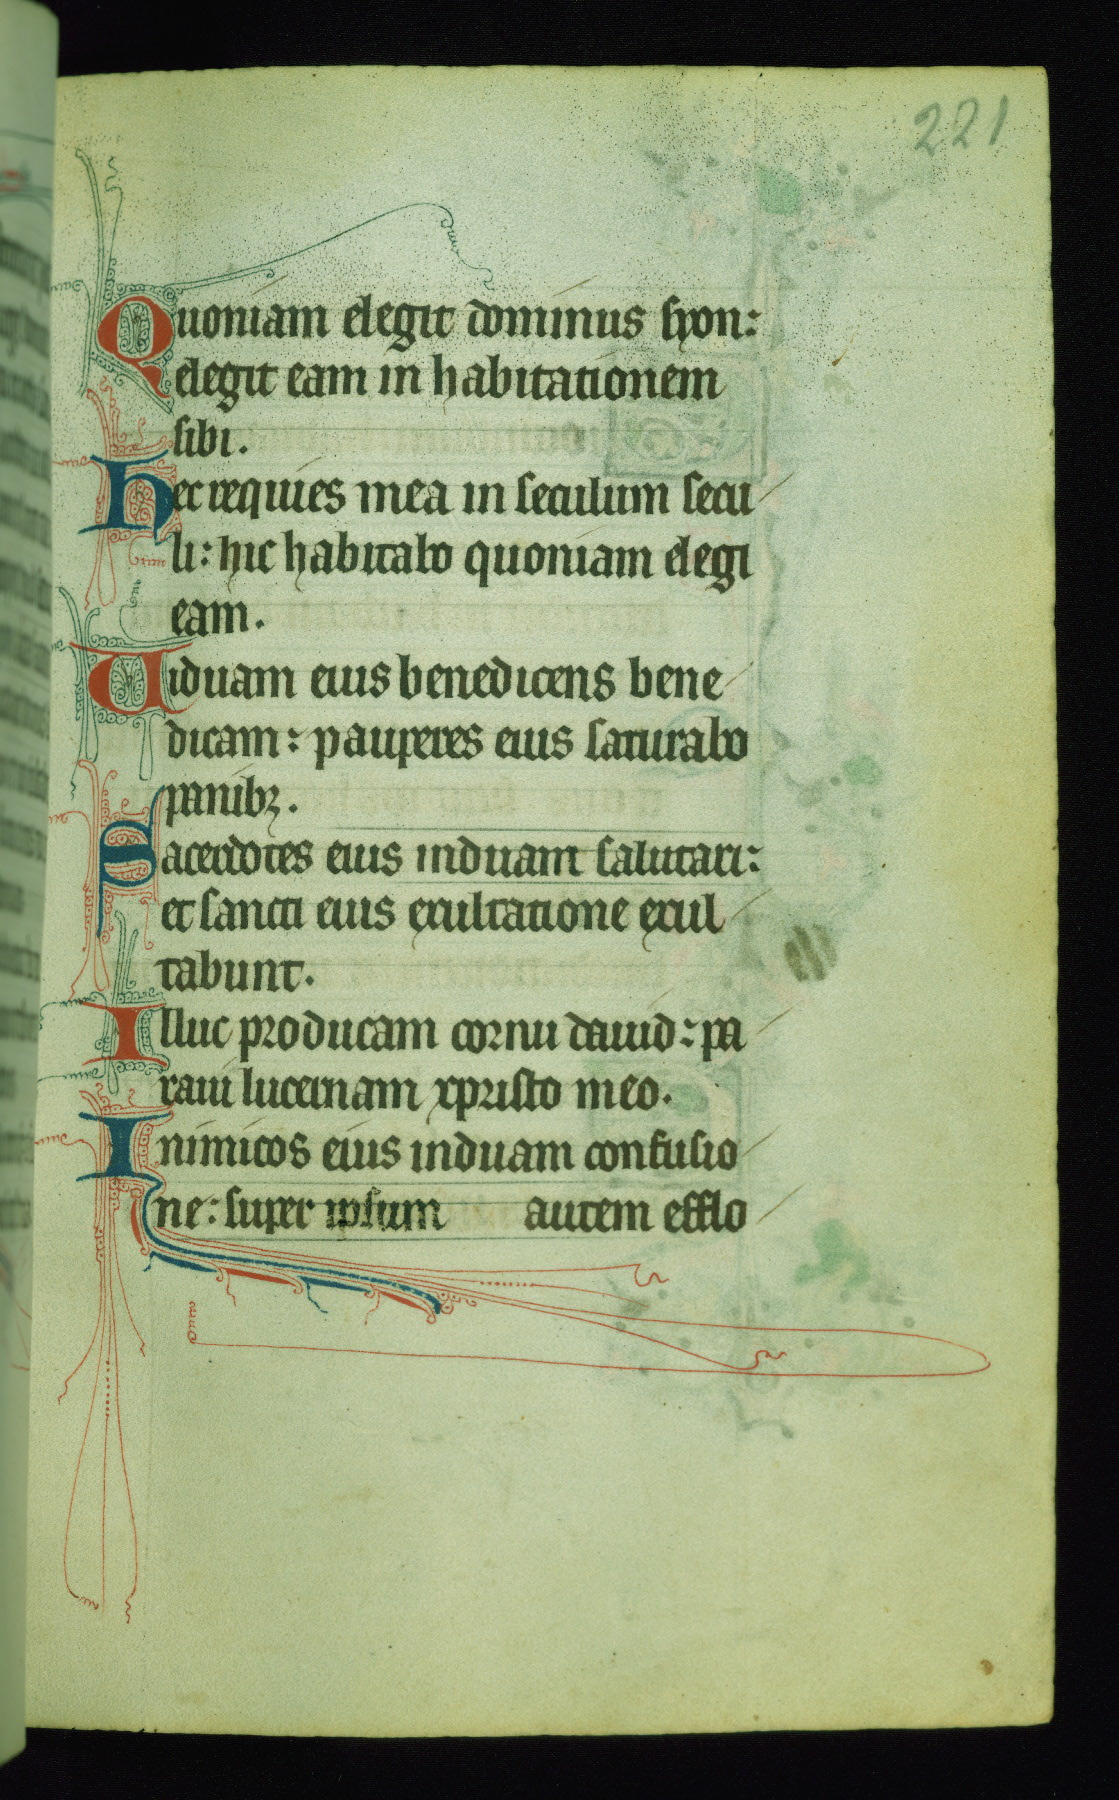 221
Quoniam elegit dominus syon:
elegit eam in habitationem
sibi.
Hec requies mea in seculum secu
li: hic habitabo quoniam elegi
eam.
Uiduam eius benedicens bene
dicam: pauperes eius saturabo
panibꝫ.
Sacerdotes eius induam salutari:
et sancti eius exultatione exul
tabunt.
Illuc producam cornu dauid: pa
raui lucernam xpristo meo.
Inimicos eius induam confusio
ne: super ipsum autem efflo